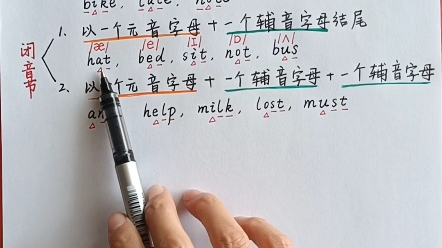 bike, late, note
1. 以一个元音字母 + 一个辅音字母结尾
/æ/ /e/ /ɪ/ /ɒ/ /ʌ/
hat, bed, sit, not, bus
闭音节
2. 以 个元音字母 + 一个辅音字母 + 一个辅音字母
help, milk, lost, must